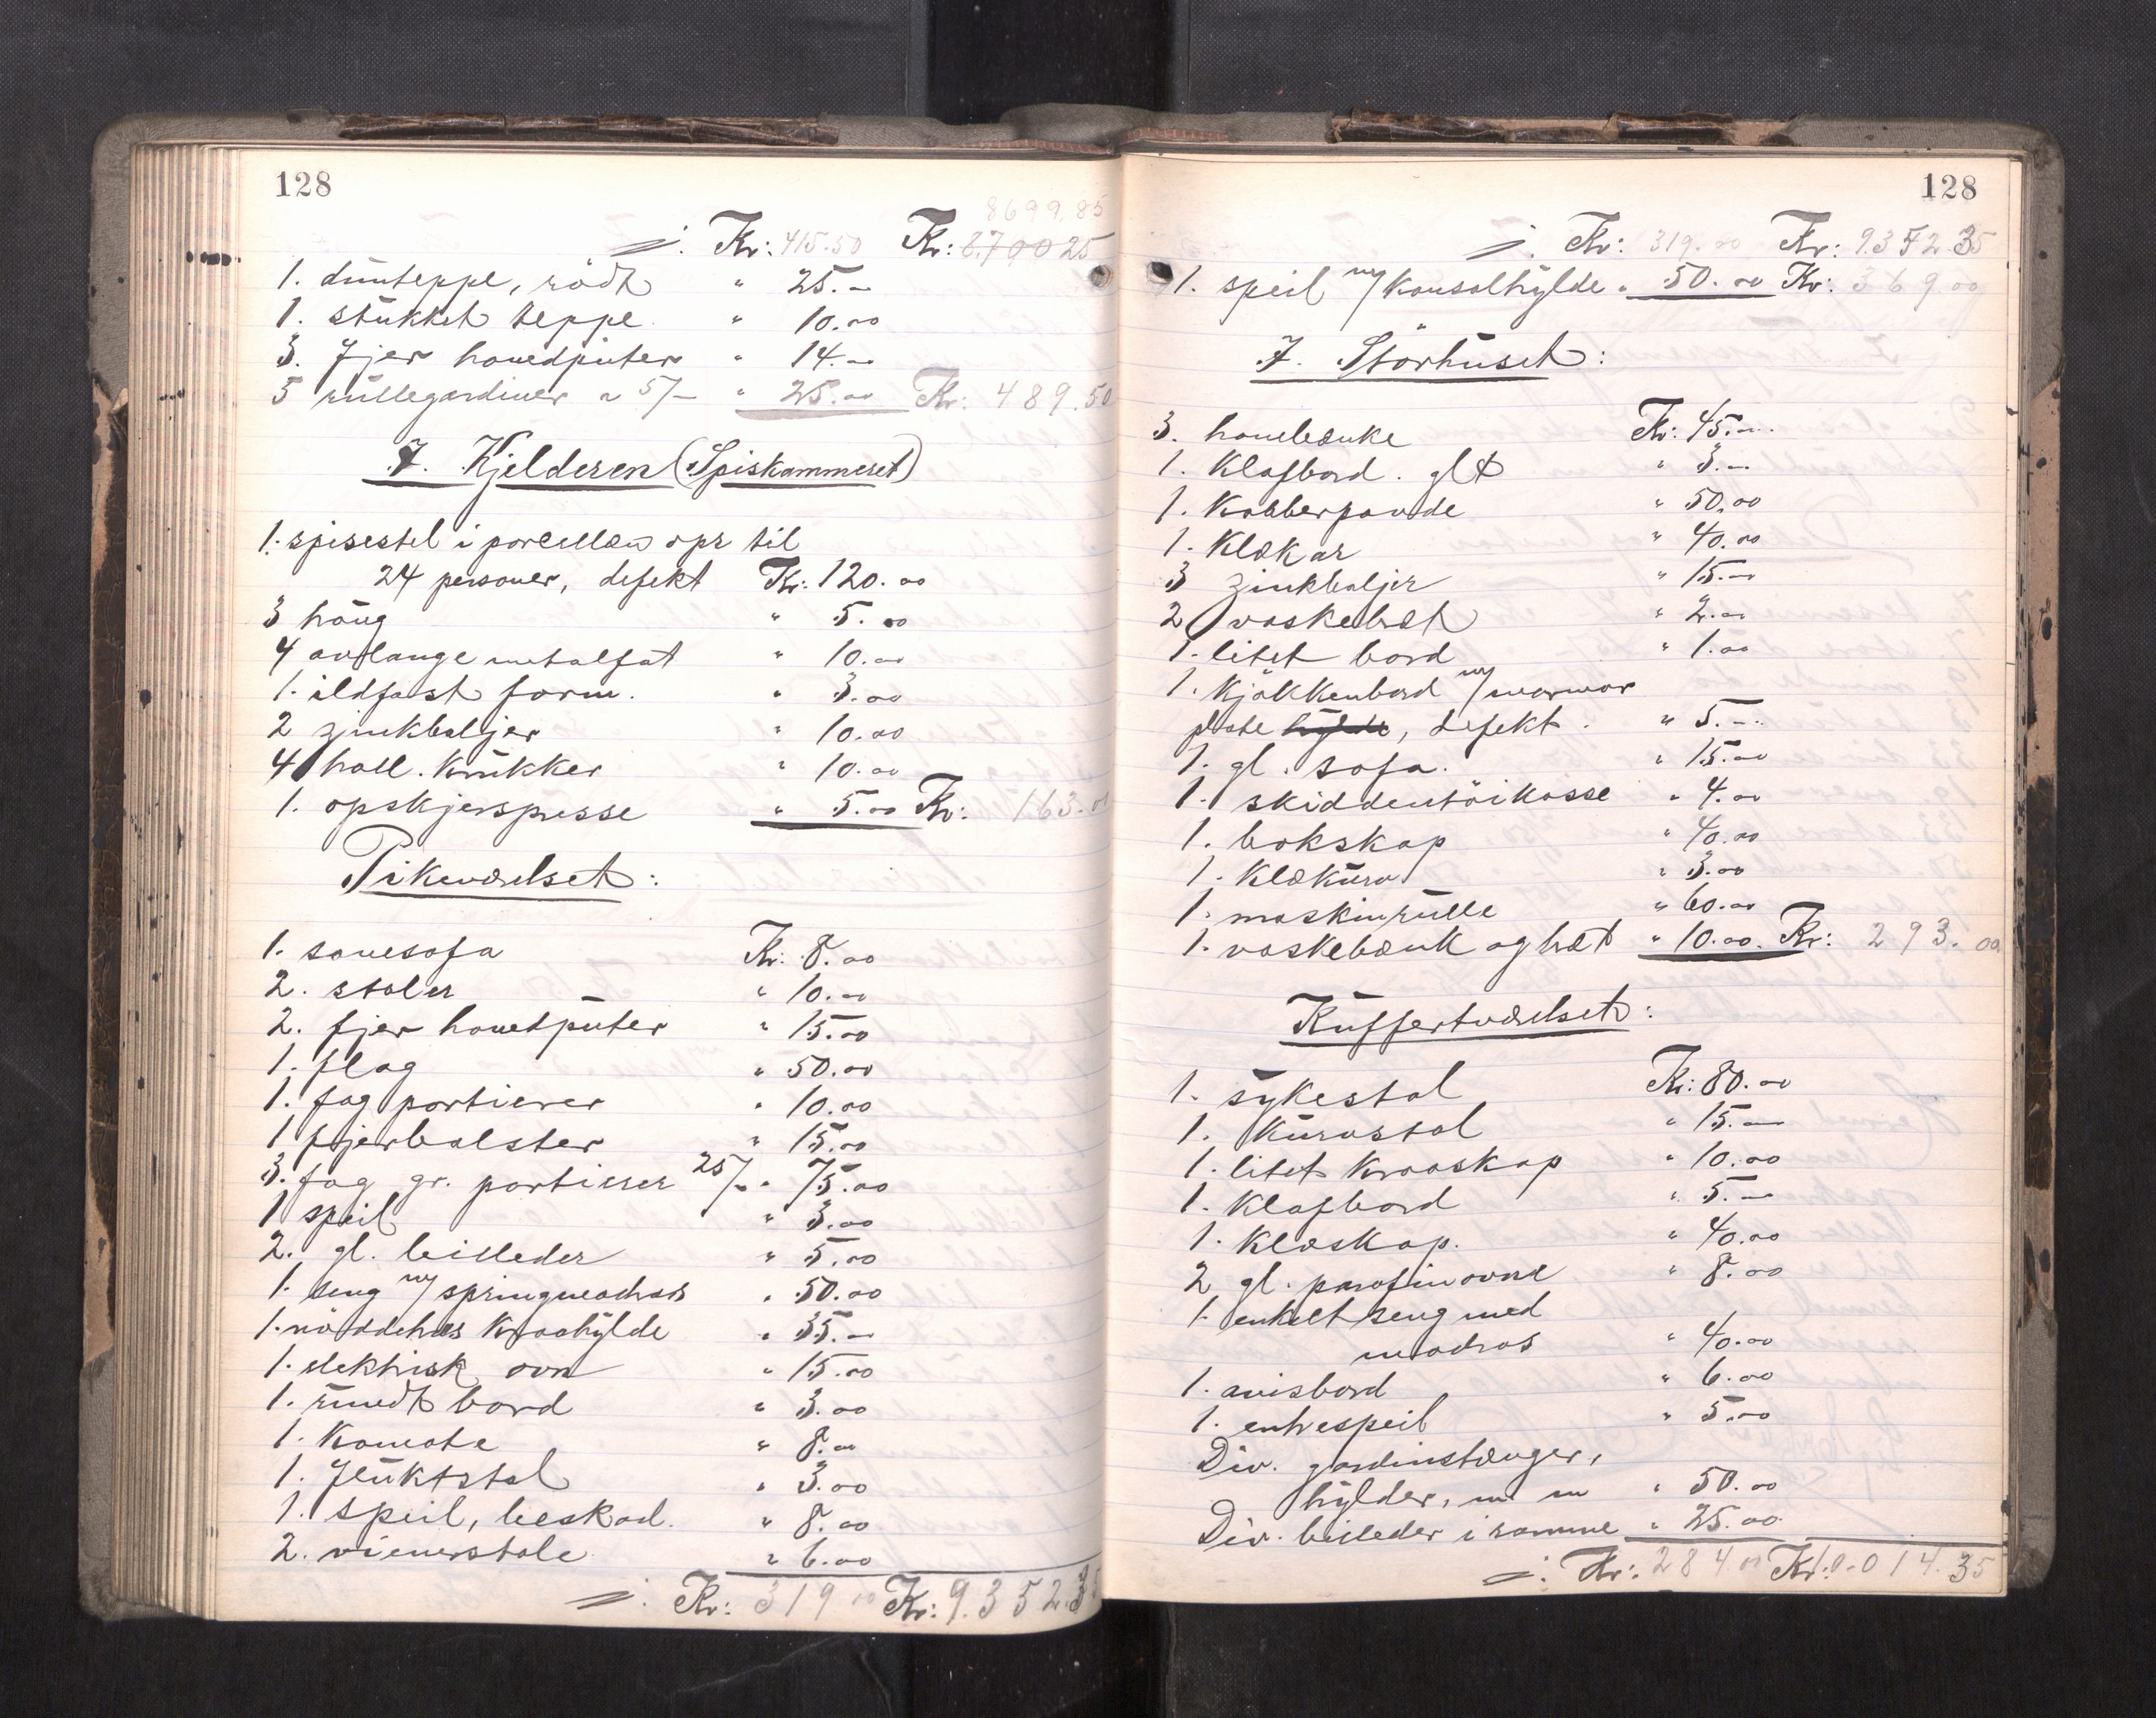 128
8699,85
./. Kr: 415.50 Kr: 8.700 25
1. dunteppe, rödt " 25.–
1. stukket teppe. " 10.00
3. Fjær hovedputer " 14.–
5 rullegardiner a 5/– " 25.00 Kr: 489.50
I. Kjelderen (Spiskammeret)
1. spisestel i porcellæn opr til
24 personer, defekt Kr: 120.00
3 haug " 5.00
4 avlange metalfat " 10.00
1. ildfast form. " 3.00
2 zinkbaljer " 10.00
4 holl. Krukker " 10.00
1. opskjærspresse " 5.00 Kr: 163.00
Pikeværelset:
1. sovesofa Kr: 8.00
2. stoler " 10.00
2. fjer hovedputer " 15.00
1. flag " 50.00
1. fag portierer " 10.00
1 fjerbolster " 15.00
3. fag gr. portierer 25/– " 75.00
1 speil " 3.00
2. gl. billeder " 5.00
1. seng m/ springmadras " 50.00
1. nöddetræs Kroghylde " 35.–
1. elektrisk ovn " 15.00
1. rundt bord " 3.00
1. Komode " 8.00
1. Fluktstol " 3.00
1. speil, beskad. " 8.00
2. wienerstole " 6.00
./. Kr: 319 00 Kr: 9.352.35
128
./. Kr: 319.00 Kr: 9.352.35
1. speil m/ Konsolhylde " 50.00 Kr: 369.00
I. Storhuset:
3. havebænke Kr: 45.–
1. Klafbord. glt " 3.–
1. Kobberpande " 50.00
1. Klækar " 40.00
3 zinkbaljer " 15.–
2 vaskebræt " 2.00
1. litet bord " 1.00
1. Kjökkenbord m/ marmor
plate hylde, defekt. " 5.–
1. gl. sofa. " 15.00
1. skiddentöikasse " 4.00
1. bokskap " 40.00
1. Klækurv " 3.00
1. maskinrulle " 60.00
1. vaskebænk og bræt " 10.00. Kr: 293.00
Kuffertværelset:
1. sykestol Kr: 80.00
1. Kurvstol " 15.–
1. litet Kroaskap " 10.00
1. Klafbord " 5.–
1. Klæskap. " 40.00
2 gl. parafinovne " 8.00
1. enkelt seng med
madras " 40.00
1. avisbord " 6.00
1. entrespeil " 5.00
Div. gardinstænger,
hylder, m m " 50.00
Div. billeder i ramme " 25.00
./. Kr: 284 00 Kr: 10.014.35